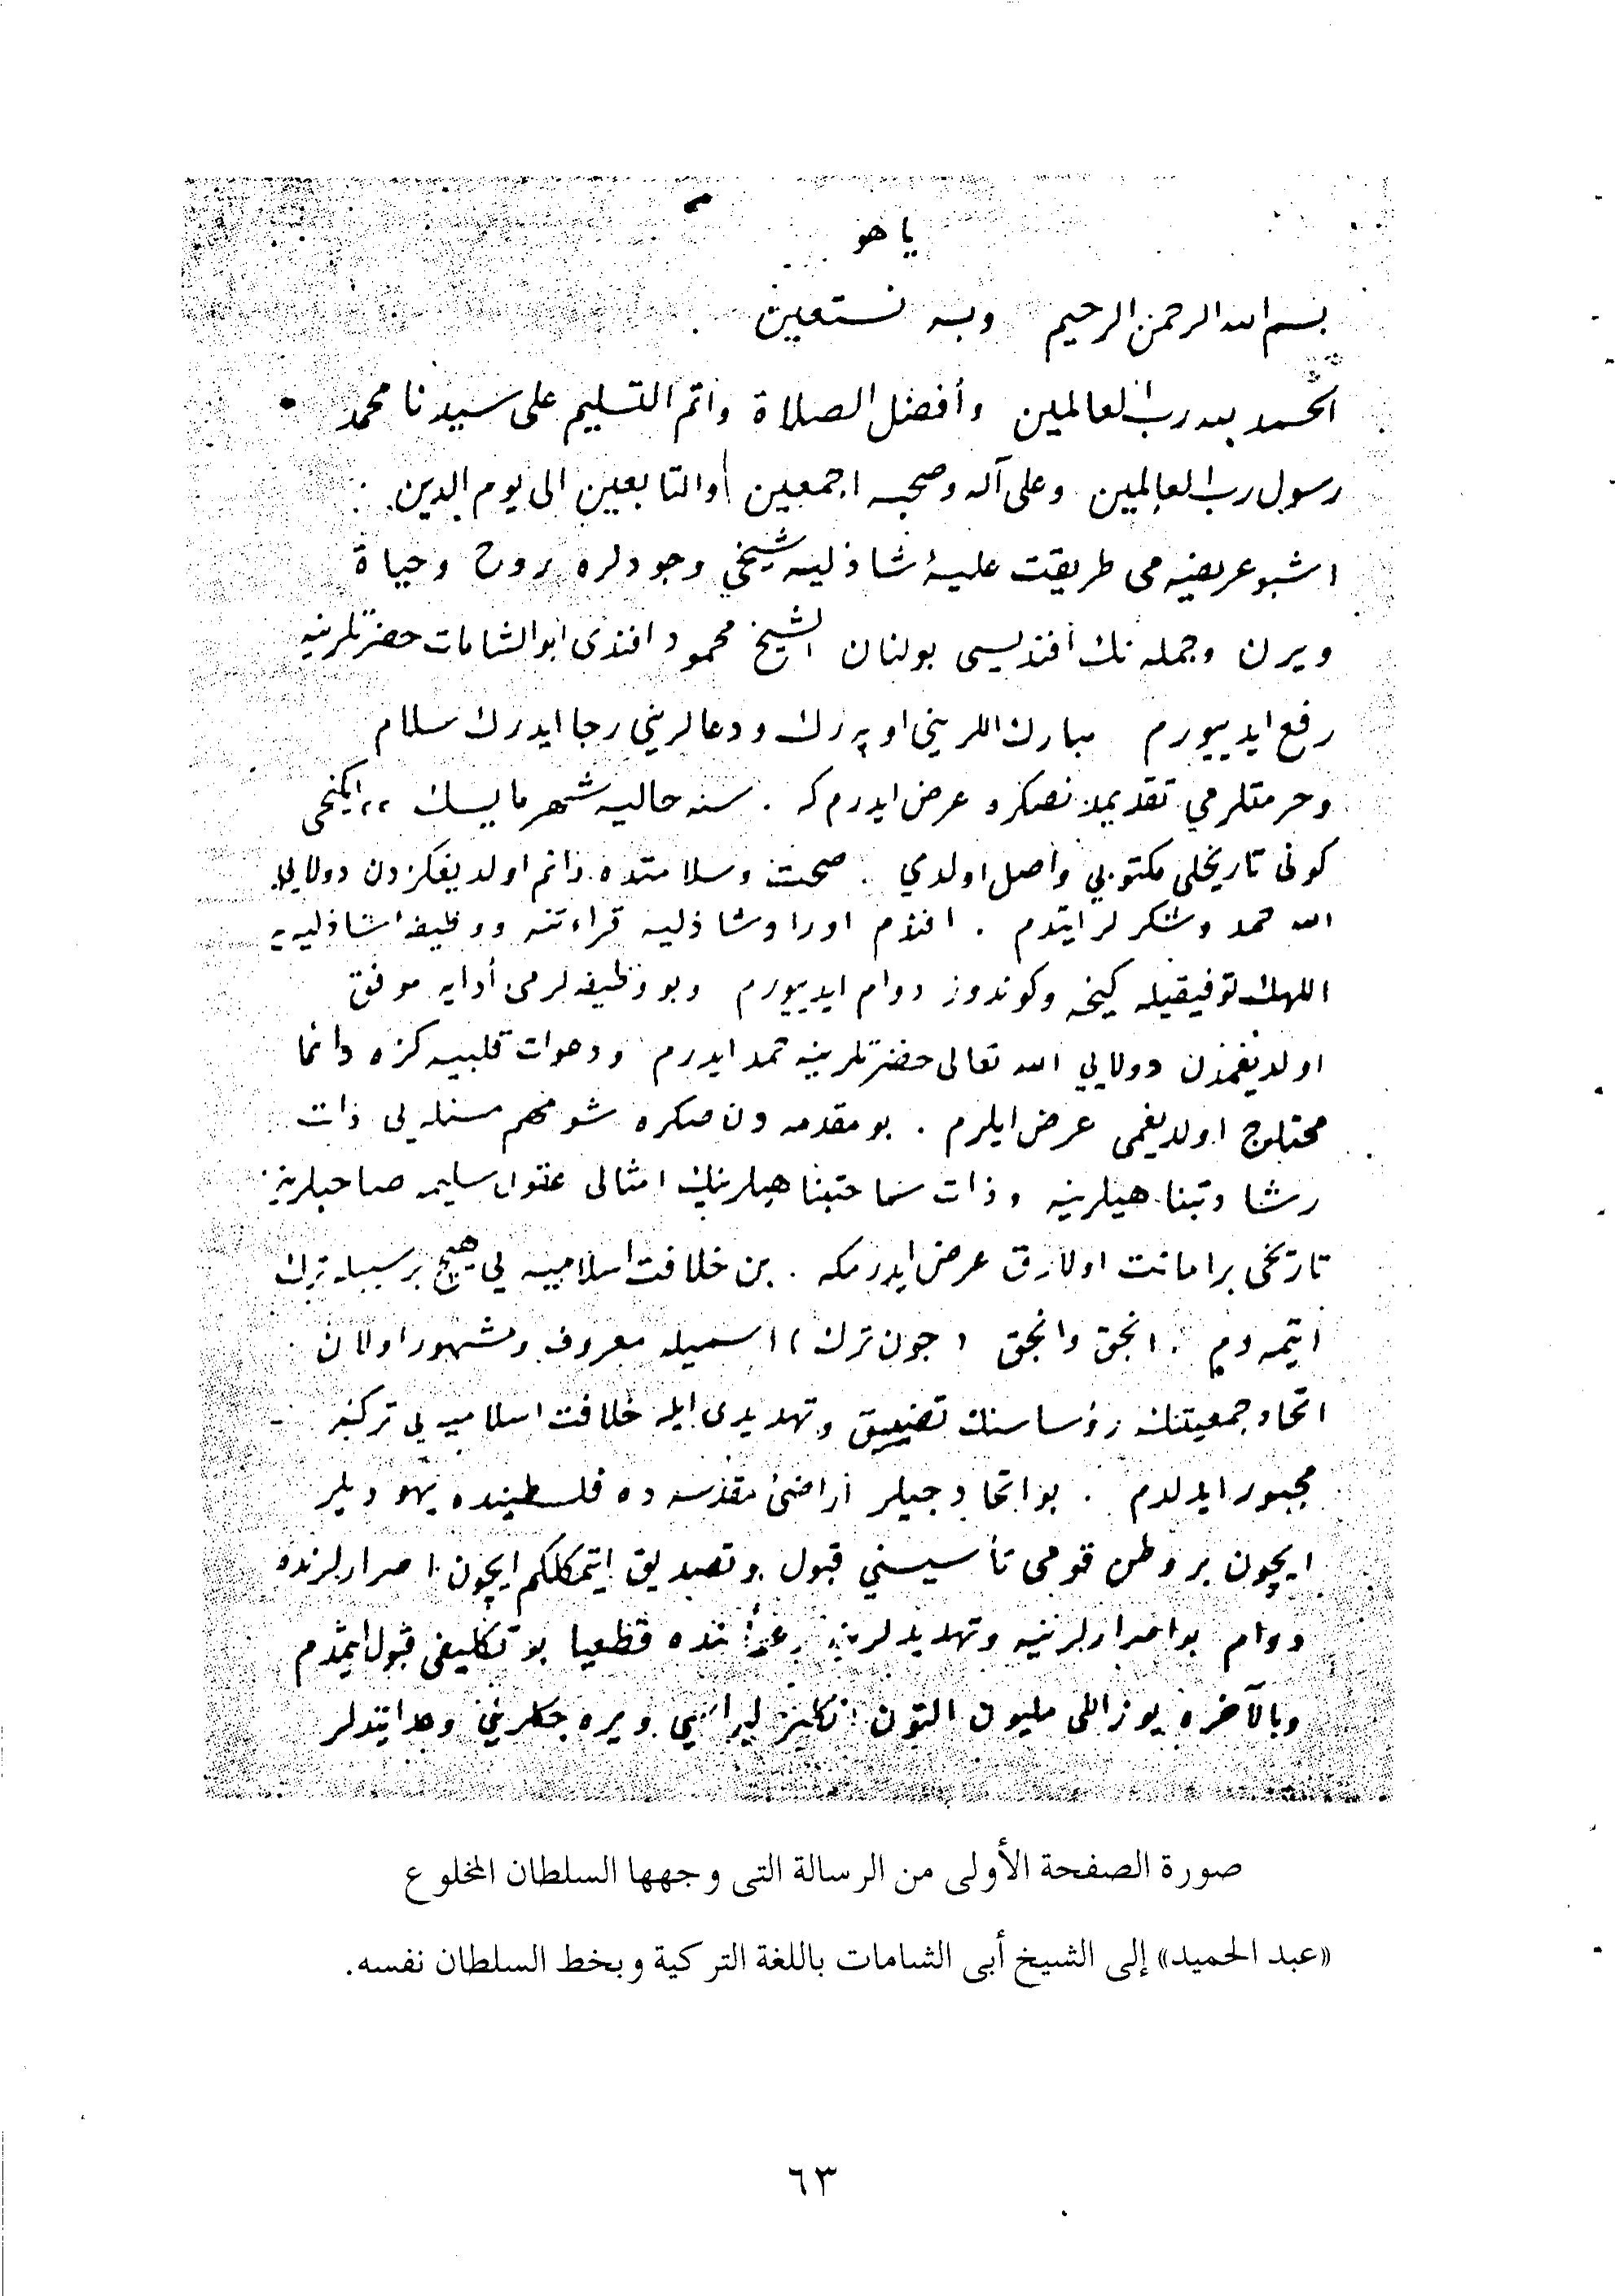 يا هو
بسم الله الرحمن الرحيم وبه نستعين
الحمد لله رب العالمين وأفضل الصلاة واتم التسليم على سيدنا محمد
رسول رب العالمين وعلى آله وصحبه اجمعين والتابعين الى يوم الدين.
اشبو عريضه مى طريقت عليۀ شاذليه شيخي وجودلره روح وحياة
ويرن وجمله نك أفنديسى بولنان الشيخ محمود افندى ابو الشامات حضرتلرينه
رفع ايدييورم مبارك اللريني اوپه رك ودعالريني رجا ايدرك سلام
وحرمتلرمي تقديمدنصكره عرض ايدرم كه . سنه حاليه شهر مايسك ٢٢ ايكنجى
كونى تاريخلى مكتوبي واصل اولدي . صحت وسلامتده دائم اولديغكزدن دولايى
الله حمد وشكرلر ايتدم . افندم اوراد شاذليه قراءتنه ووظيفه شاذليه يه
اللهك توفيقيله كيجه وكوندوز دوام ايدييورم وبو وظيفه لرمى أدايه موفق
اولديغمدن دولايى الله تعالى حضرتلرينه حمد ايدرم ودعوات قلبيه كزه دائما
محتاج اولديغمى عرض ايلرم . بو مقدمه دن صكره شو مهم مسئله يى ذات
رشادتپناهيلرينه وذات سماحتپناهيلرينك امثالى عقول سليمه صاحبلرينه
تاريخى بر امانت اولارق عرض ايدرمكه . بن خلافت اسلاميه يي هيچ بر سببله ترك
ايتمه دم . انجق وانجق (جون ترك) اسميله معروف ومشهور اولان
اتحاد جمعيتنك رؤساسنك تضييق وتهديدى ايله خلافت اسلاميه يي تركه
مجبور ايدلدم . بو اتحادجيلر اراضئ مقدسه ده فلسطينده يهوديلر
ايچون بر وطن قومى تأسيسني قبول وتصديق ايتمكلكم ايچون اصرارلرنده
دوام بو اصرارلرينه وتهديدلرينه رغماً بنده قطعيا بو تكليفى قبول ايتمدم
وبالآخره يوز اللى مليون التون انكليز ليراسي ويره جكلريني وعد ايتديلر
صورة الصفحة الأولى من الرسالة التى وجهها السلطان المخلوع
«عبد الحميد» إلى الشيخ أبى الشامات باللغة التركية وبخط السلطان نفسه.
٦٣